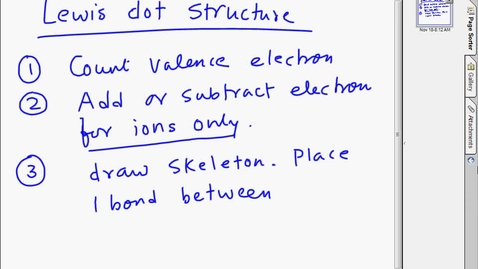 Lewis dot structure
① Count valence electron
② Add or subtract electron
for ions only.
③ draw skeleton. Place
1 bond between
Nov 18-8:12 AM
Page Sorter
Gallery
Attachments